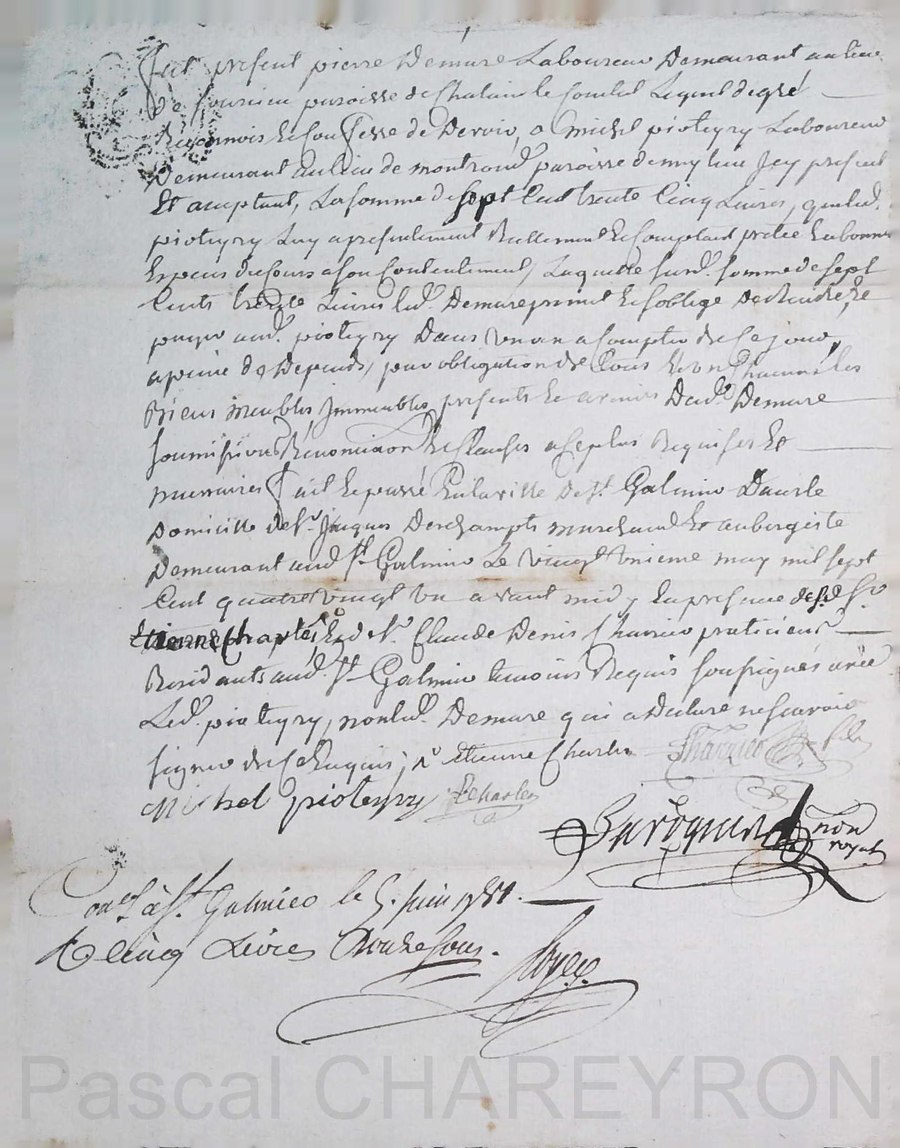 Fut present pierre Demure Laboureur Demeurant au lieu
de fourieu paroisse de Chalain le Comtal Lequel de gré
Reconnois Et Confesse de Devoir, a Michel pioteyry Laboureur
Demeurant au lieu de montrond paroisse de my present
Et acceptant, La somme de sept Cent trente Cinq Livres, que led.
pioteyry Luy a presentement Reellement Et Comptant pretée En bonnes
Especes de Cours a son Contentement, Laquelle susd. somme de sept
Cents trente Livres led. Demure promet Et soblige De Rendre, Et
payer aud. pioteyry Dans un an a Compter de Ce jour,
a peine de Depends, par obligation de tous Et Un Chacun les
Biens meubles Immeubles presents Et avenir Dud. Demure
soumissions Renonciaon Et Clauses a Ce plus Requises Et
necessaires fait Et passé En la ville de St. Galmier Dans le
Domicille de Sr. Jacques Deschamps marchand Et aubergiste
Demeurant aud. St. Galmier Le vingt Unieme may mil sept
Cent quatre vingt Un avant midy En presence de Sr.
Etienne Charles Et de Sr. Claude Denis Charvier praticiens
Residants aud. St. Galmier temoins Requis soussignés avec
Led. pioteyry, non led. Demure qui a Declaré ne scavoir
signer de Ce Enquis; Sr Etienne Charles
Michel pioteyry E Charles
Charvier
no.re
royal
Con.lé à St. Galmier le 5. Juin 1781.
R cinq Livres douze sous.
Pascal CHAREYRON